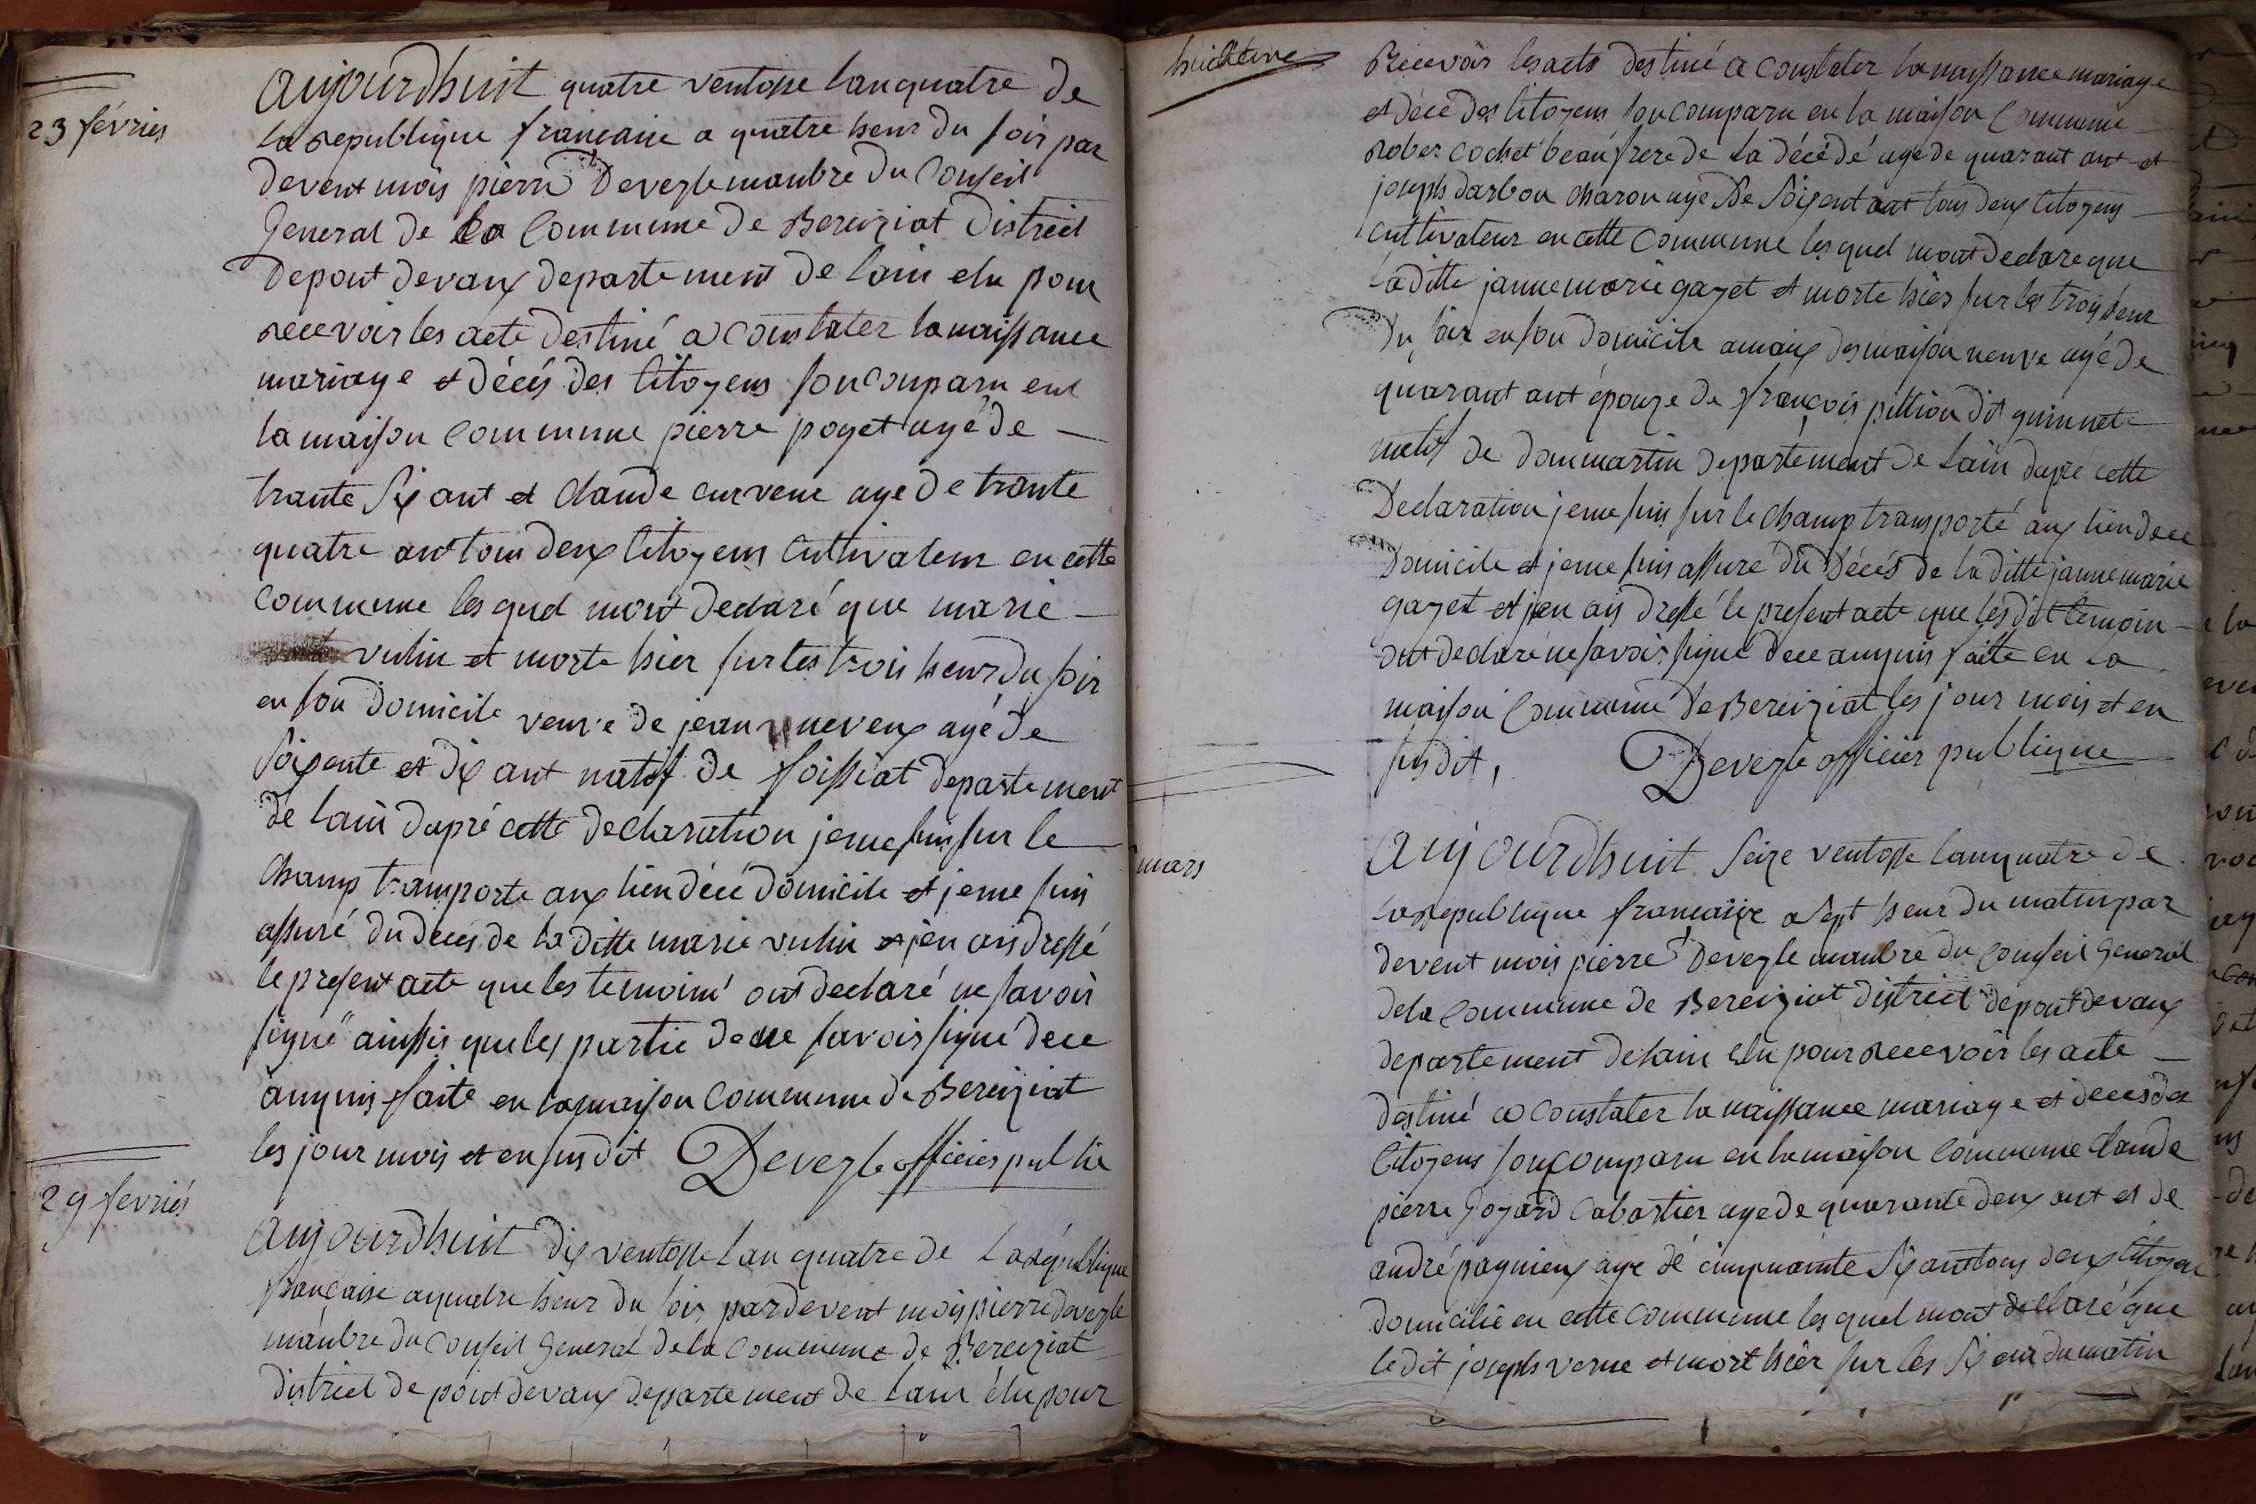 23 févriés
aujourdhuit quatre ventosse lan quatre de
la republique francaine a quatre heur du soir par
devent mois pierre Devegle manbre du Conseil
General de la Commune de Bereiziat District
depont devaux departement de lain elu pour
recevoir les acte destiné a constater la naissance
mariage et décés des Citoyens son conparu ent
la maison Commune pierre poget agé de
trante six ant et claude curveur age de trante
quatre ant tous deux Citoyens cultivateur en cette
commune les quel mont declaré que marie
vulin et morte hier sur les trois heur du soir
en son domicile veuve de jean neveux agé de
soixente et dix ant natif de foissiat departement
de lain dapré cette declaration je me suis sur le
champ transporte aux lien dece domicile et je me suis
assuré du deces de la ditte marie vulin et jen ais dressé
le present acte que les temoins ont declaré ne savoir
signé ainssis que les partie de ne savoir signé dece
anquis faite en la maison commune de Bereiziat
les jour mois et en susdit Devegle officies publie
29 fevriés
aujourdhuit dix ventosse lan quatre de la republique
francaise a quatre heur du soir par devent mois pierre devegle
manbre du Conseil General de la commune de Bereiziat
district de pont devaux departement de lain élu pour
huictieme
Recevoir les acts destiné a constater la naissance mariage
et déce des Citoyens son comparu en la maison Commune
Rober cochet beaufrere de la décédé age de quarant ant et
joseph darbon charon age de soixent ant tous deux Citoyens
cultivateur en cette commune les quel mont declare que
la ditte janne marie gayet et morte hier sur les trois heur
du soir en son domicile amaix des maison neuve agé de
quarant ant épouze de françois pittion dit guinnet
natif de dommartin departement de lain dapre cette
Declaration je me suis sur le champ transporté aux lien dece
domicile et je me suis assuré du décés de la ditte janne marie
gayet et jen ais dressé le present acte que les dit temoin
ont declaré ne savoir signe dece anquis faitte en la
maison Commune de Bereiziat les jour mois et en
susdit, Devegle officier publique
mars
aujourdhuit seize ventosse lan quatre de
la republique françaixe a sept heur du matin par
devent mois pierre Devegle manbre du conseil general
de la commune de Bereiziat district de pont devaux
departement de lain elu pour recevoir les acte
destiné a constater la naissance mariage et deces des
Citoyens son comparu en la maison commune claude
pierre Goyard cabartier age de quarante deux ant et de
andré pagnieux age de cinquainte six ant tous deux Citoyen
domicilié en cette commune les quel mont dellaré que
le dit joseph verne et mort hier sur les six eur du matin